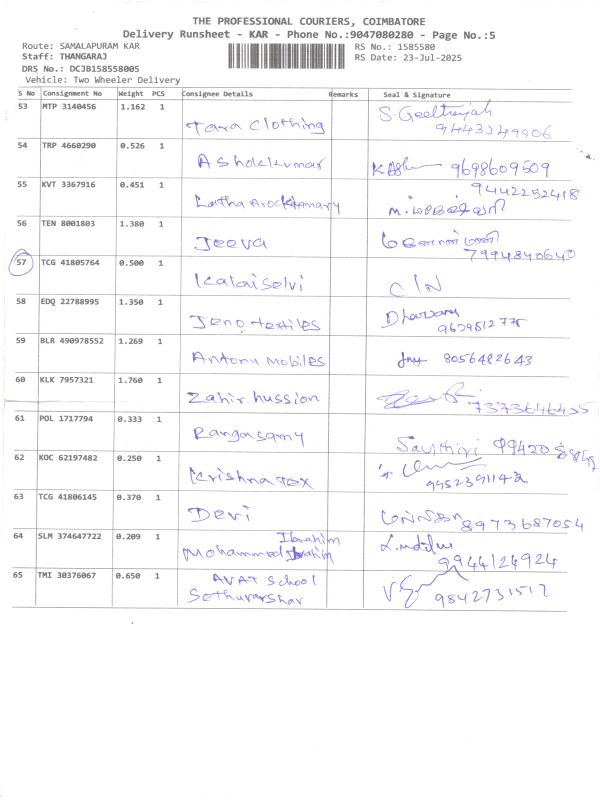 THE PROFESSIONAL COURIERS, COIMBATORE
Delivery Runsheet - KAR - Phone No.:9047080280 - Page No.:5
Route: SAMALAPURAM KAR RS No.: 1585580
Staff: THANGARAJ RS Date: 23-Jul-2025
DRS No.: DCJB158558005
Vehicle: Two Wheeler Delivery
S No Consignment No Weight PCS Consignee Details Remarks Seal & Signature
53 MTP 3140456 1.162 1 Tara Clothing
54 TRP 4660290 0.526 1 Ashokkumar 9698609509
55 KVT 3367916 0.451 1 9442252418
56 TEN 8001803 1.380 1 Jeeva 7994840640
57 TCG 41805764 0.500 1 Kalaiselvi C/N
58 EDQ 22788995 1.350 1 Jeno textiles
59 BLR 490978552 1.269 1 Antony Mobiles 8056482643
60 KLK 7957321 1.760 1 Zahir hussion
61 POL 1717794 0.333 1 Rangasamy
62 KOC 62197482 0.250 1 Krishna Tex
63 TCG 41806145 0.370 1 Devi 8973687054
64 SLM 374647722 0.209 1 Mohammed Ibrahim 9944124924
65 TMI 30376067 0.650 1 AVAT School
9842731517